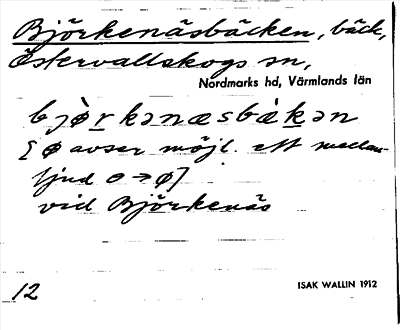 Björkenäsbäcken, bäck,
Östervallskogs sn,
Nordmarks hd, Värmlands län
bjø̀rkənæsbæ̀kən
[ø avser möjl. ett mellan-
ljud o → ø]
vid Björkenäs
12
ISAK WALLIN 1912